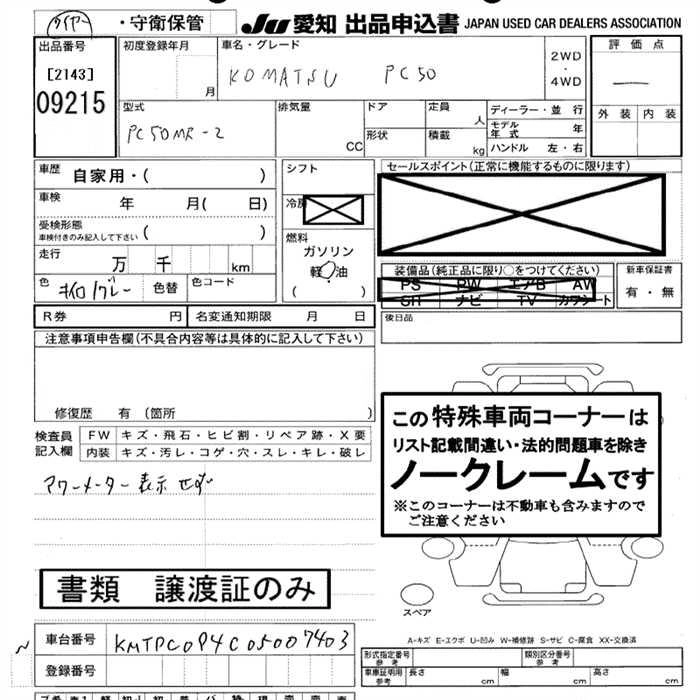 タイヤー ・守衛保管
JU 愛知 出品申込書 JAPAN USED CAR DEALERS ASSOCIATION
出品番号
[2143]
09215
初度登録年月
月
車名・グレード
KOMATSU PC50
2WD
・
4WD
評価点
外装 内装
型式
PC50MR-2
排気量
CC
ドア
形状
定員
人
積載
kg
ディーラー・並 行
モデル年式 年
ハンドル 左・右
車歴 自家用・( )
車検 年 月( 日)
受検形態
車検付きのみ記入して下さい ( )
走行 万 千 km
色 キイロ/グレー 色替 色コード
シフト
冷房
燃料
ガソリン
軽 油
( )
セールスポイント(正常に機能するものに限ります)
装備品(純正品に限り○をつけてください)
PS PW エアB AW
SR ナビ TV カワシート
新車保証書
有・無
R券 円 名変通知期限 月 日
後日品
注意事項申告欄(不具合内容等は具体的に記入して下さい)
修復歴 有 (箇所 )
検査員
記入欄
FW キズ・飛石・ヒビ割・リペア跡・X要
内装 キズ・汚レ・コゲ・穴・スレ・キレ・破レ
アワーメーター表示せず
この特殊車両コーナーは
リスト記載間違い・法的問題車を除き
ノークレームです
※このコーナーは不動車も含みますので
ご注意ください
書類 譲渡証のみ
スペア
A-キズ E-エクボ U-凹み W-補修跡 S-サビ C-腐食 XX-交換済
車台番号 KMTPC0P4C05007403
登録番号
形式指定番号
参考
類別区分番号
参考
車庫証明用
参考
長さ cm 幅 cm 高さ cm